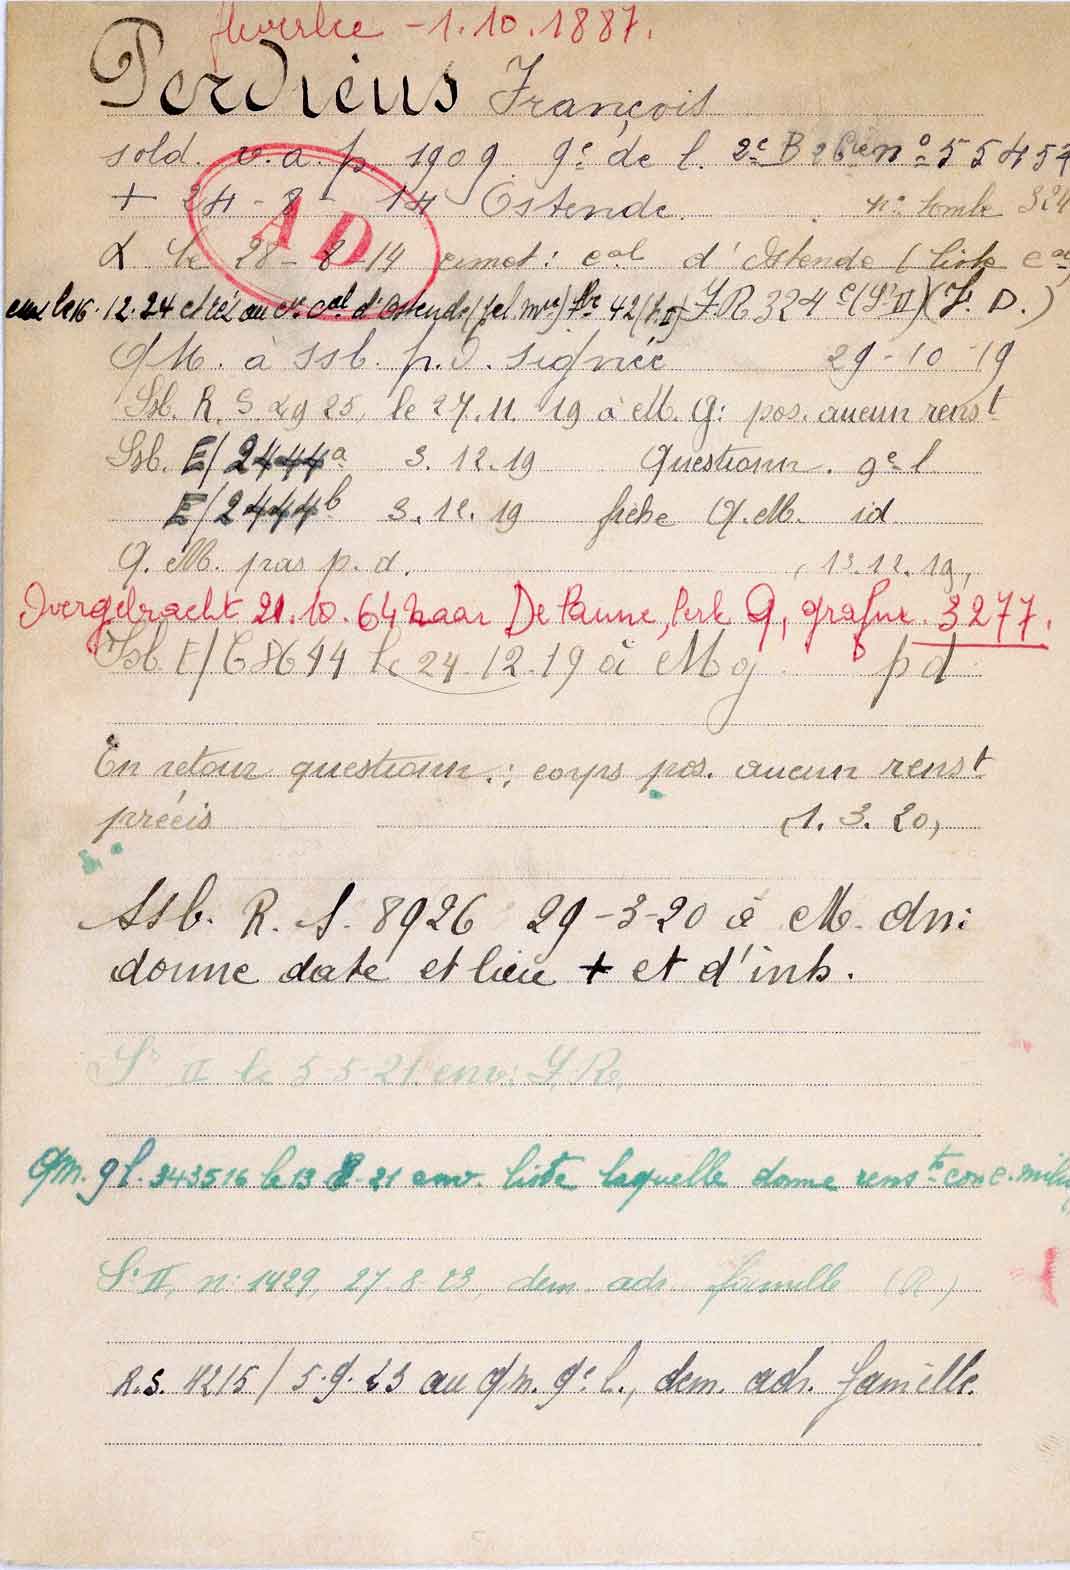 -1.10.1887.
Perdiéus François
sold. v.a. p. 1909. 9e de l. 2e B 2 Cie n° 55457
+ 24-8-14 Ostende. n° tombe 324
AD
le 28-8-14 cimet: cal d'Ostende (liste cal
le 16.12.24 et au cal d'Ostende 42 (S.II) F.R 324 e (Se II) (F. D.)
QM. à SSb. p.d. signée 29-10-19
SSb. R. S 2925, le 27.11.19 à M. G: pos. aucun renst
SSb. E/2444a 3.12.19 Questionn. 9e l
E/2444b 3.12.19 fiche Q.M. id
Q. M. pas p.d. (13.12.19)
Overgebracht 21.10.64 naar De Panne, Perk G, grafnr. 3277.
SSb E/C8644 le 24-12-19 à M g pd
En retour questionn.: corps pos. aucun renst
précis (1.3.20)
SSb. R. S. 8926 29-3-20 à M. dn:
donne date et lieu + et d'inh.
Se II le 5-5-21 env: F.R.
QM. 9 l. 343516 le 13 8-21 env. liste laquelle donne renst conc. milit
Se II, n: 1429, 27.8.23, dem. adr. famille (R.)
R.S. 4215 / 5.9.23 au QM. 9e l., dem. adr. famille.